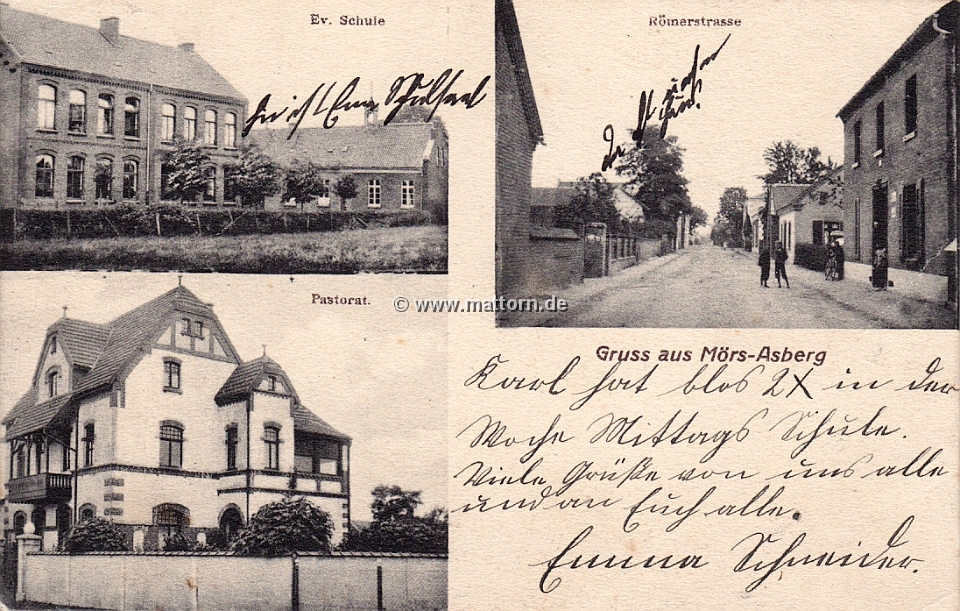 Ev. Schule
Römerstrasse
hir ist Emma Schulsaal
Pastorat.
© www.mattorn.de
Gruss aus Mörs-Asberg
Karl hat blos 2X in der
Woche Mittags Schule.
Viele Grüße von uns alle
und an Euch alle.
Emma Schneider.